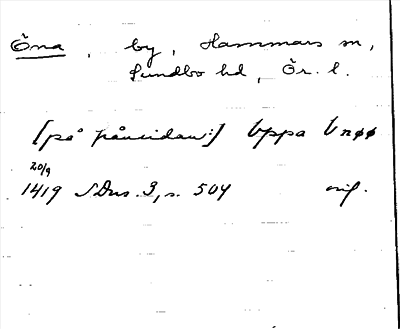 Öna, by, Hammars sn,
Sundbo hd, Ör. l.
[på påsidan:] Uppa Vnøø
20/9
1419 SDns. 3, s. 504 orig.